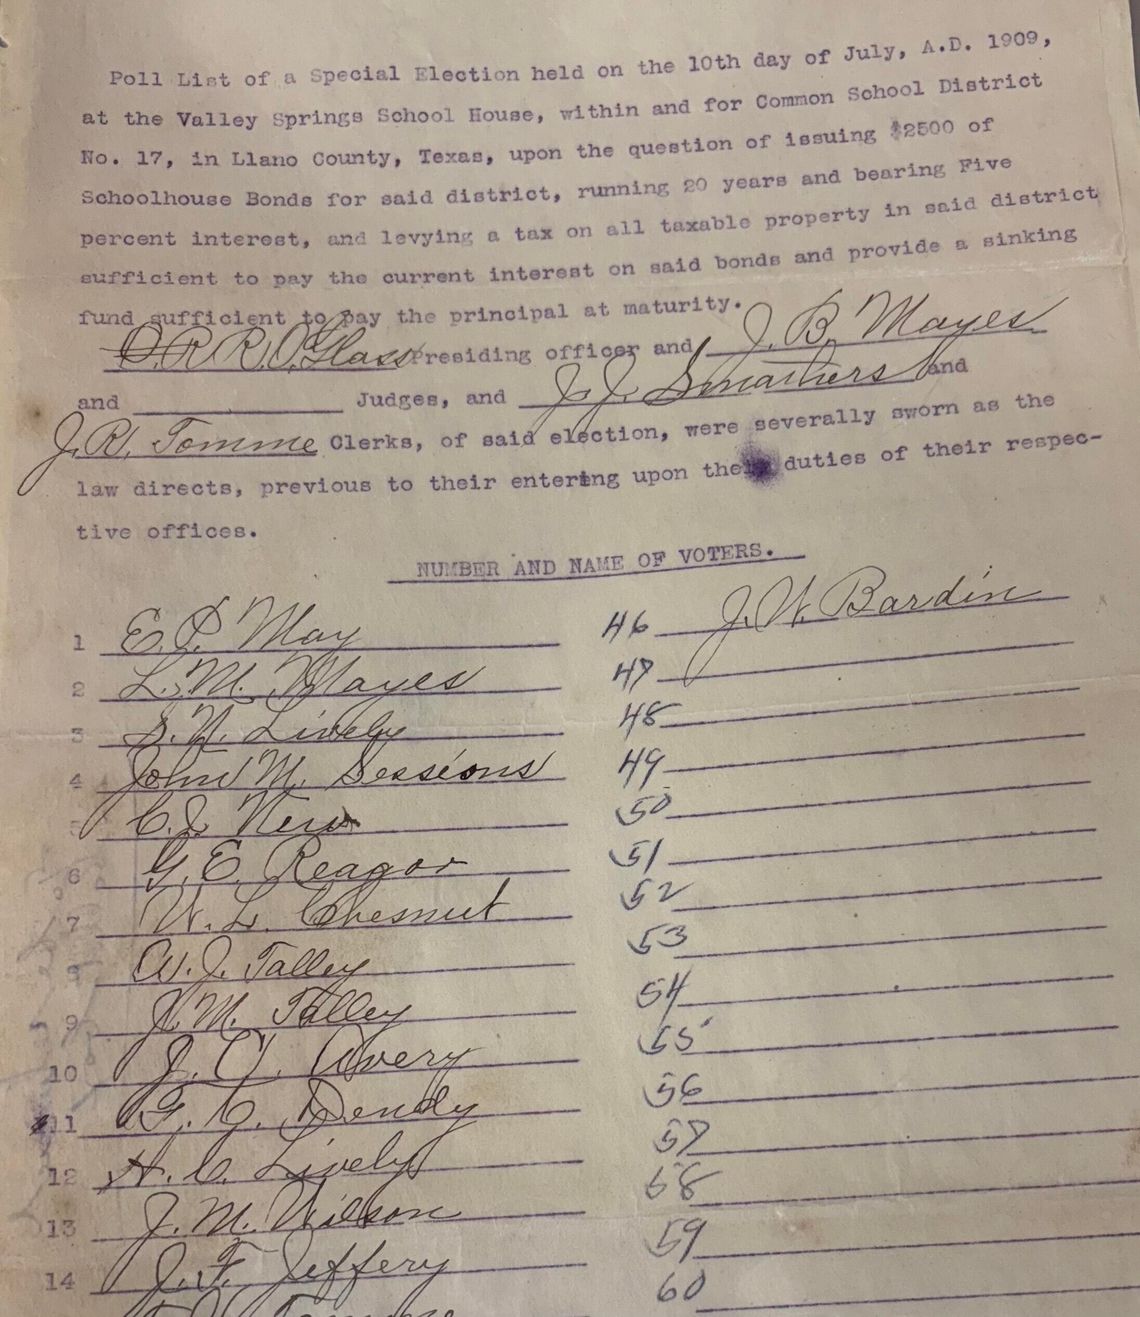 Poll List of a Special Election held on the 10th day of July, A.D. 1909,
at the Valley Springs School House, within and for Common School District
No. 17, in Llano County, Texas, upon the question of issuing $2500 of
Schoolhouse Bonds for said district, running 20 years and bearing Five
percent interest, and levying a tax on all taxable property in said district
sufficient to pay the current interest on said bonds and provide a sinking
fund sufficient to pay the principal at maturity.
R. O. Glass Presiding officer and J. B. Mayes
and Judges, and J. J. Smathers and
J. R. Tomme Clerks, of said election, were severally sworn as the
law directs, previous to their entering upon their duties of their respec-
tive offices.
NUMBER AND NAME OF VOTERS.
1 E. P. May
2 L. M. Mayes
3 S. N. Lively
4 John M. Sessions
5 C. J. New
6 G. E. Reagor
7 W. L. Chesnut
8 W. J. Talley
9 J. M. Talley
10 J. O. Avery
11 G. C. Dendy
12 H. C. Lively
13 J. M. Wilson
14 J. F. Jeffery
46 J. W. Bardin
47
48
49
50
51
52
53
54
55
56
57
58
59
60